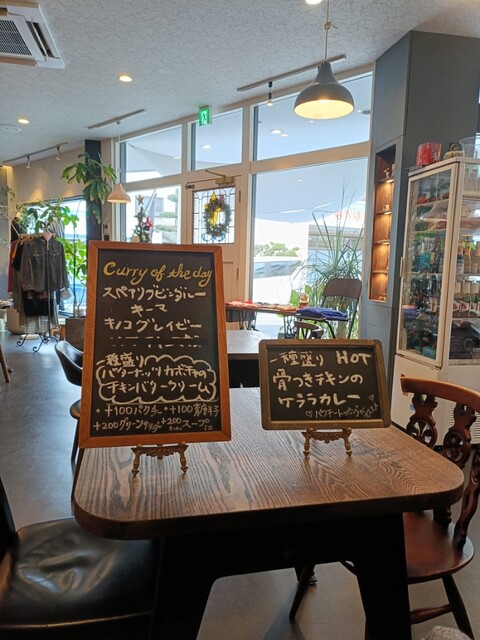 Curry of the day
スペアリブビンダルー
キーマ
キノコグレイビー
一種盛り
バターナッツカボチャの
チキンバタークリーム
・+100パクチー ・+100青唐辛子
+200グリーンサラダ +200スープ
一種盛り HOT
骨つきチキンの
ケララカレー